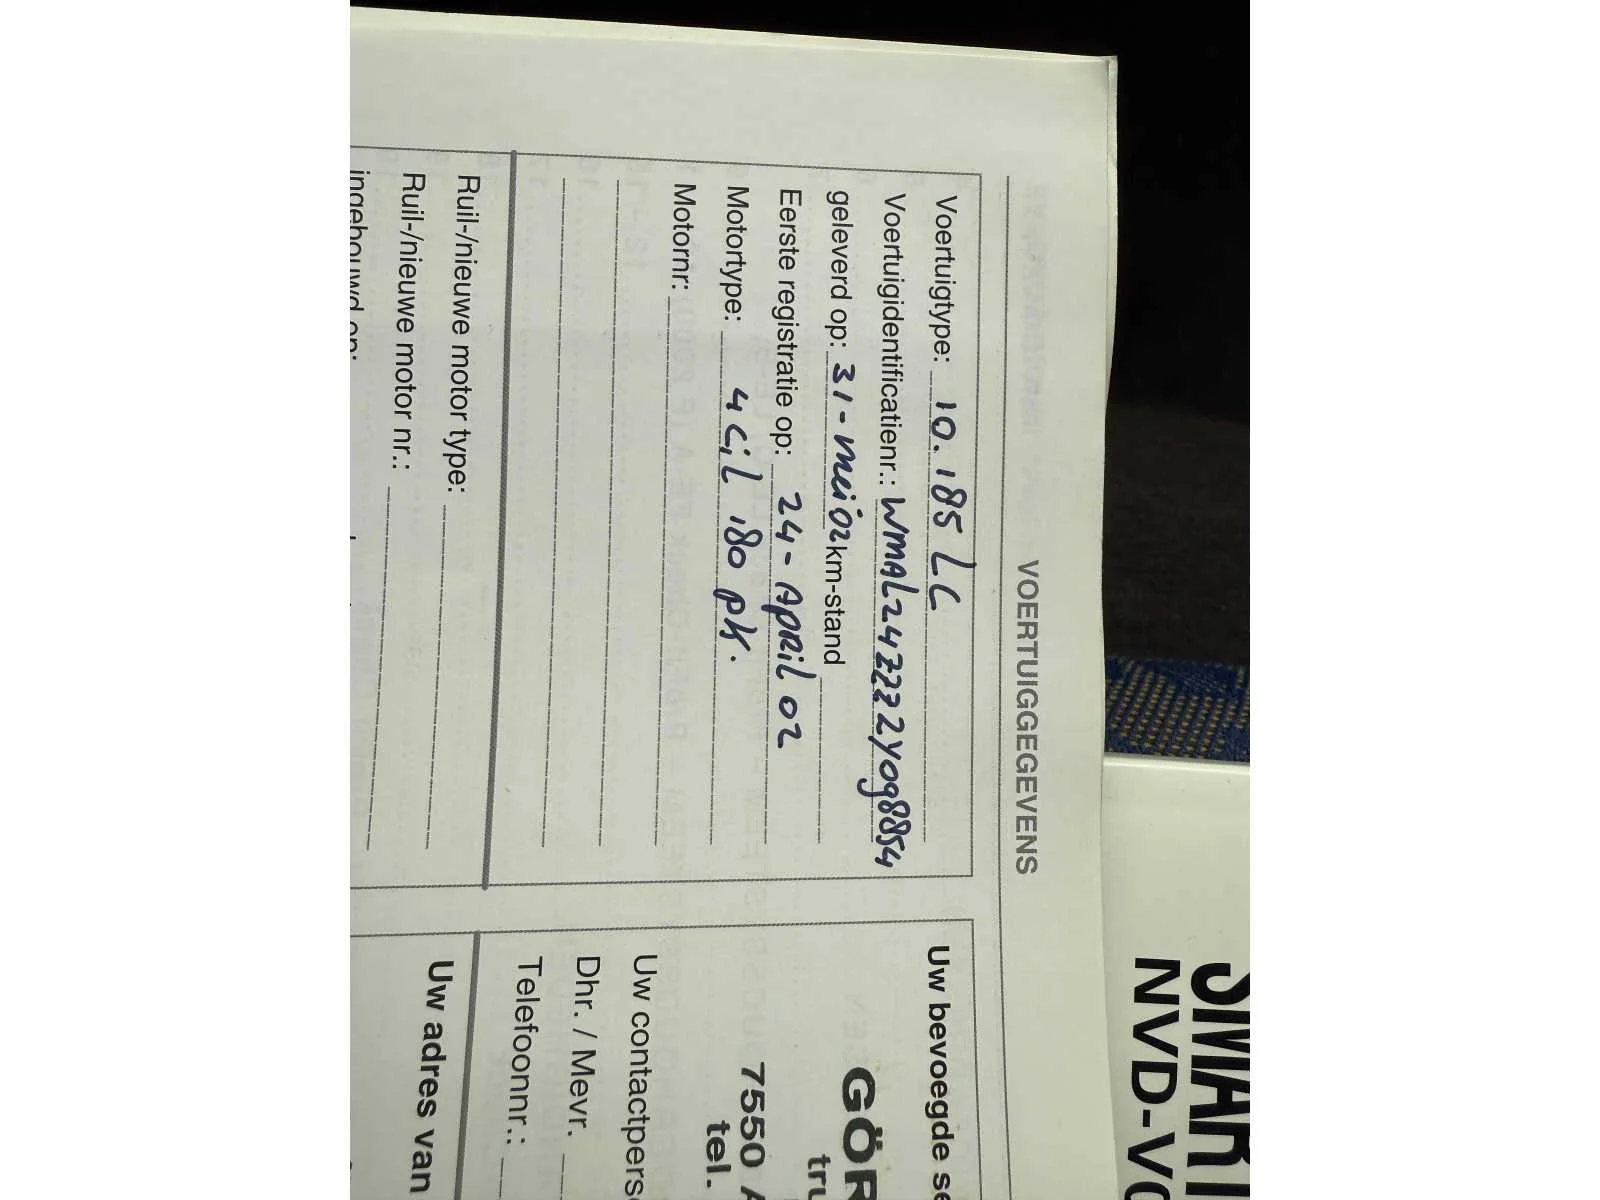 VOERTUIGGEGEVENS
Voertuigtype: 10.185 LC
Voertuigidentificatienr.: WMAL24ZZZ2Y098854
geleverd op: 31-mei 02 km-stand
Eerste registratie op: 24-April 02
Motortype: 4 cil 180 pk.
Motornr:
Ruil-/nieuwe motor type:
Ruil-/nieuwe motor nr.:
ingebouwd op:
Uw bevoegde se
GÖR
tru
7550 A
tel.
Uw contactperso
Dhr. / Mevr.
Telefoonnr.:
Uw adres van
SMART
NVD-VO